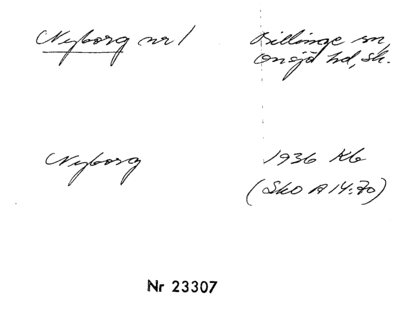 Nyborg nr 1
Billinge sn,
Onsjö hd, Sk.
Nyborg
1936 Kb
(Sko A 14:70)
Nr 23307